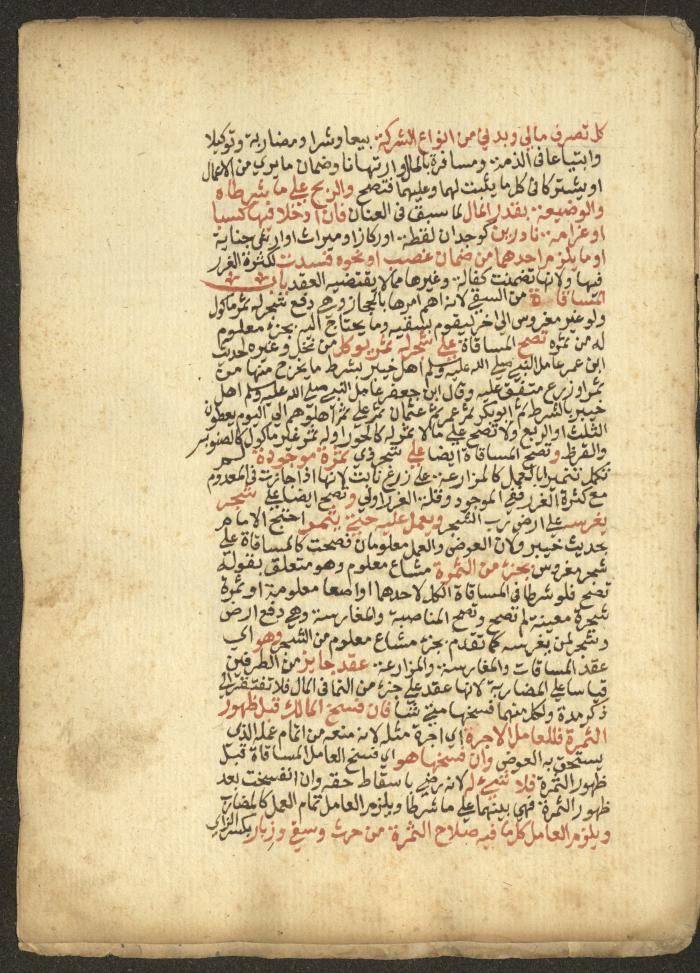 كل تصرف مالي وبدني من انواع الشركة بيعا وشرا ومضاربة وتوكيلا
وابتياعا في الذمة ومسافرة بالمال وارتهانا وضمان ما يري من الاعمال
او يشتركا في كل ما يثبت لهما وعليهما فتصح والربح علي ما شرطاه
والوضيعة بقدر المال لما سبق في العنان فان ادخلا فيها كسبا
او غرامة نادرين كوجدان لقطة او ركاز او ميراث او ارش جناية
او ما يلزم احدهما من ضمان غصب او نحوه فسدت لكثرة الغرر
فيها ولانها تضمنت كفالة وغيرها مما لا يقتضيه العقد باب
المساقاة من السقي لانه اهم امرها بالحجاز وهي دفع شجر له ثمر ماكول
ولو غير مغروس الي اخر ليقوم بسقيه وما يحتاج اليه بجزء معلوم
له من ثمره تصح المساقاة علي شجر له ثمر يوكل من نخل وغيره لحديث
ابن عمر عامل النبي صلي الله عليه وسلم اهل خيبر بشطر ما يخرج منها من
ثمر او زرع متفق عليه وقال ابو جعفر عامل النبي صلي الله عليه وسلم اهل
خيبر بالشطر ثم ابو بكر ثم عمر ثم عثمان ثم علي ثم اهلوهم الي اليوم يعطون
الثلث او الربع ولا تصح علي ما لا ثمر له كالحور او له ثمر غير ماكول كالصنوبر
والقرظ وتصح المساقاة ايضا علي شجر ذي ثمرة موجودة لم
تكمل تنمي بالعمل كالمزارعة علي زرع نابت لانها اذا جازت في المعدوم
مع كثرة الغرر ففي الموجود وقلة الغرر اولي وتصح ايضا علي شجر
يغرسه علي ارض رب الشجر ويعمل عليه حتي يثمر احتج الامام
بحديث خيبر ولان العوض والعمل معلومان فصحت كالمساقاة علي
شجر مغروس بجزء من الثمرة مشاع معلوم وهو متعلق بقوله
تصح فلو شرطا في المساقاة الكل لاحدهما او اصعا معلومة او ثمرة
شجرة معينة لم تصح وتصح المناصبة والمغارسة وهي دفع ارض
وشجر لمن يغرسه كما تقدم بجزء مشاع معلوم من الشجر وهو اي
عقد المساقات والمغارسة والمزارعة عقد جايز من الطرفين
قياسا علي المضاربة لانها عقد علي جزء من النما في المال فلا تفتقر الي
ذكر مدة ولكل منهما فسخها متي شا فان فسخ المالك قبل ظهور
الثمرة فللعامل الاجرة اي اجرة مثله لانه منعه من اتمام عمله الذي
يستحق به العوض وان فسخها هو اي فسخ العامل المساقاة قبل
ظهور الثمرة فلا شيء له لانه رضي باسقاط حقه وان انفسخت بعد
ظهور الثمرة فهي بينهما علي ما شرطا ويلزم العامل تمام العمل كالمضارب
ويلزم العامل كل ما فيه صلاح الثمرة من حرث وسقي وزبار بكسر الزاي